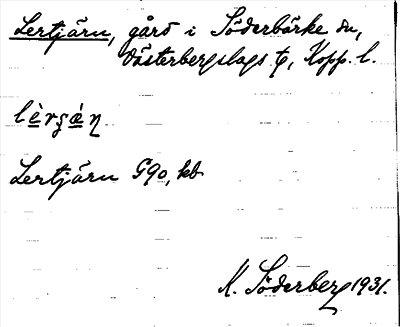 Lertjärn, gård i Söderbärke sn,
Västerbergslags tg, Kopp. l.
Lertjärn G90, kb
K. Söderberg 1931.